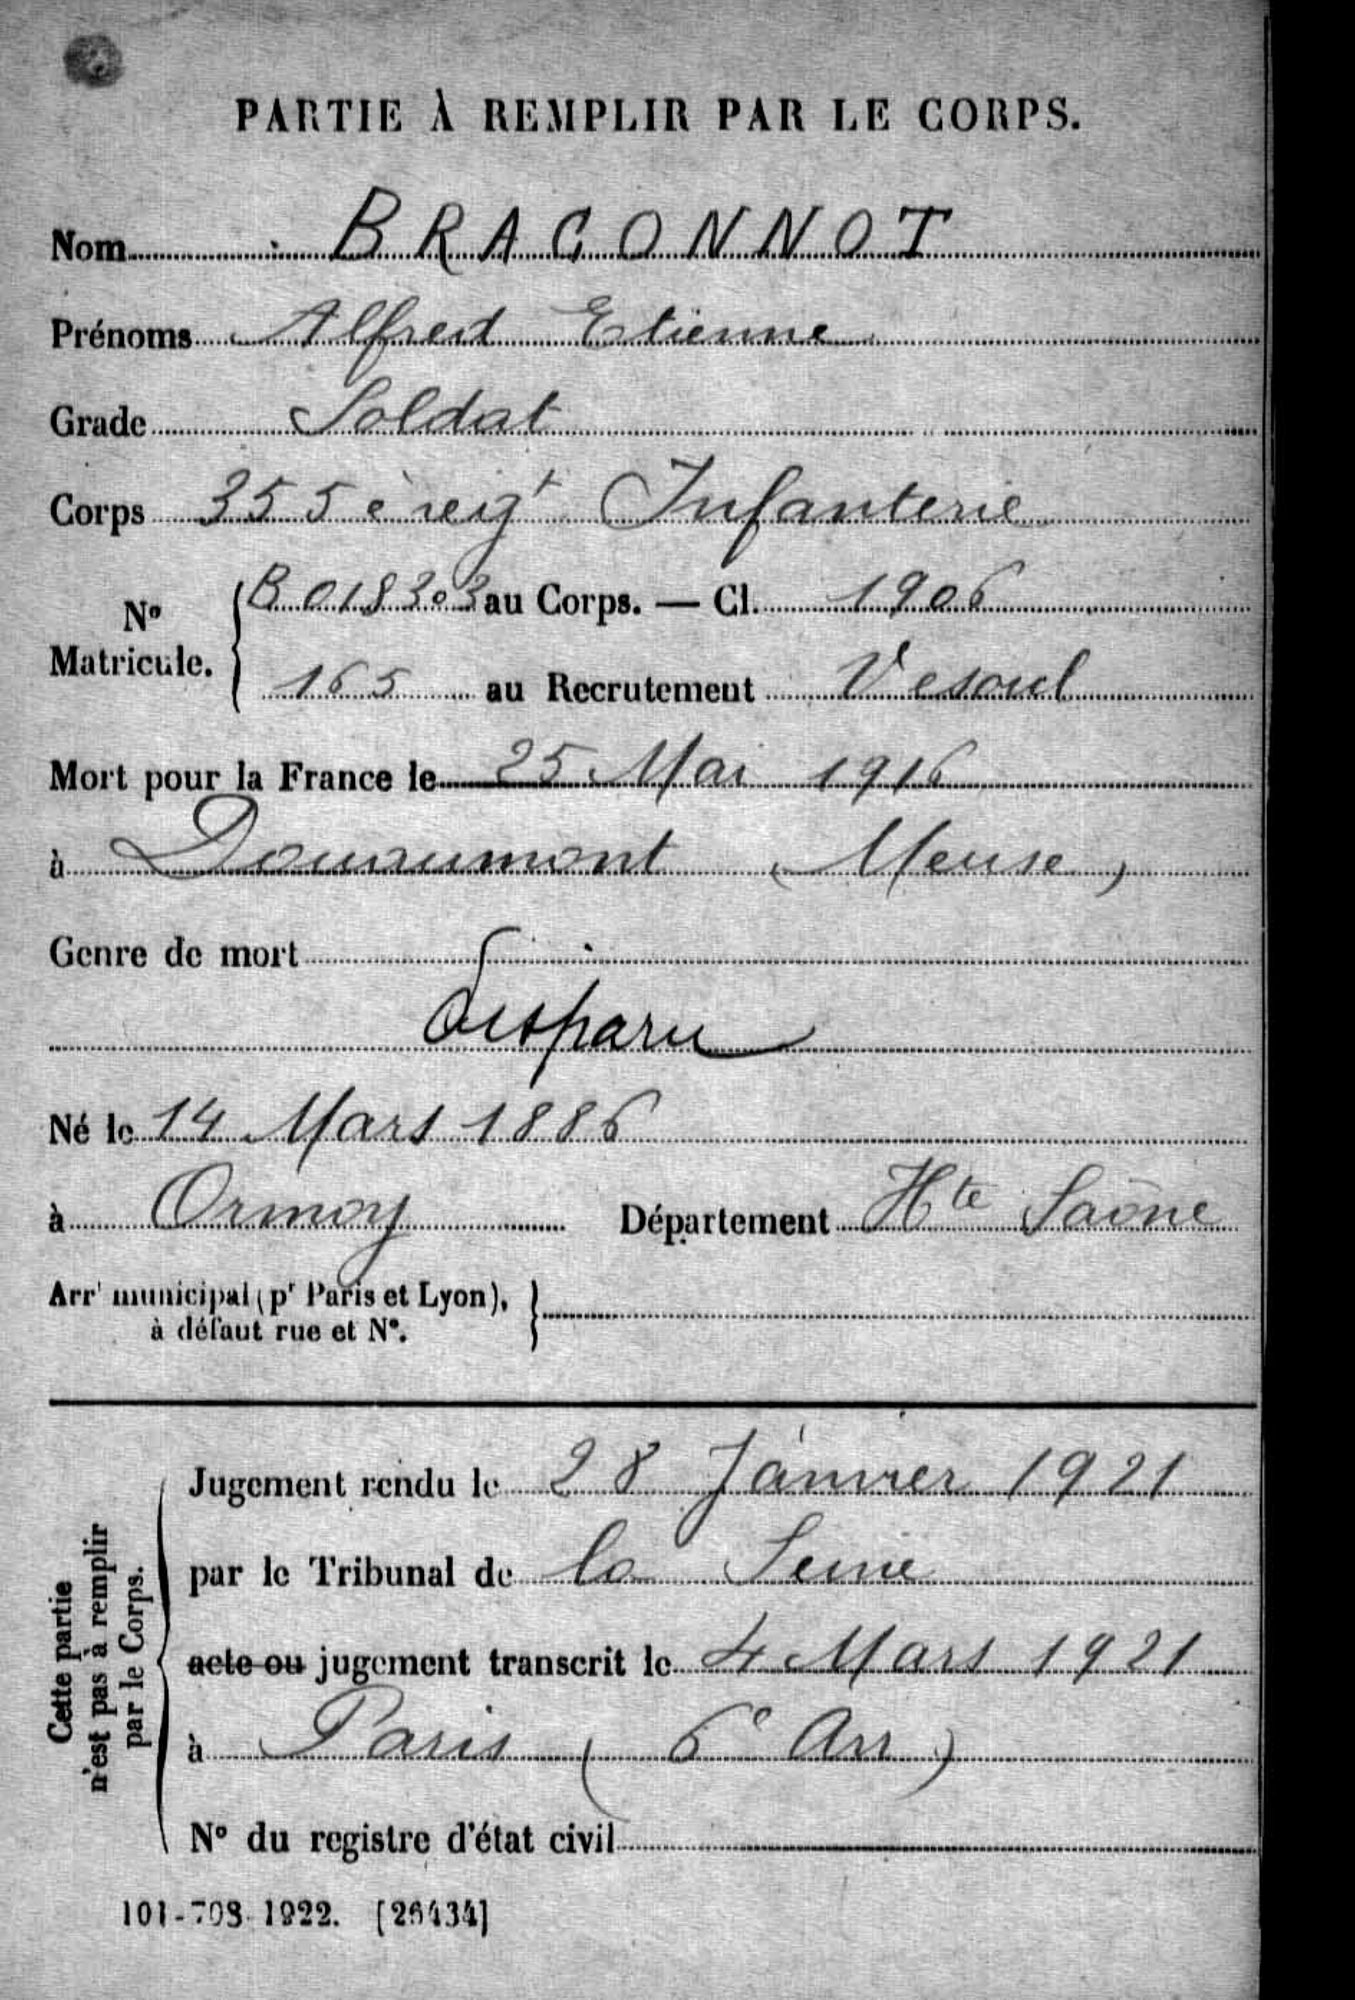 PARTIE À REMPLIR PAR LE CORPS.
Nom BRACONNOT
Prénoms Alfred Etienne
Grade Soldat
Corps 355è reigt Infanterie
No Matricule. { B018303 au Corps. — Cl. 1906
165 au Recrutement Vesoul
Mort pour la France le 25 Mai 1916
à Douaumont (Meuse)
Genre de mort
disparu
Né le 14 Mars 1886
à Ormoy Département Hte Saône
Arrt municipal (pr Paris et Lyon), }
à défaut rue et N°.
Cette partie
n'est pas à remplir
par le Corps.
Jugement rendu le 28 Janvier 1921
par le Tribunal de la Seine
acte ou jugement transcrit le 4 Mars 1921
à Paris (6e Arr)
N° du registre d'état civil
101-708-1922. [26434]